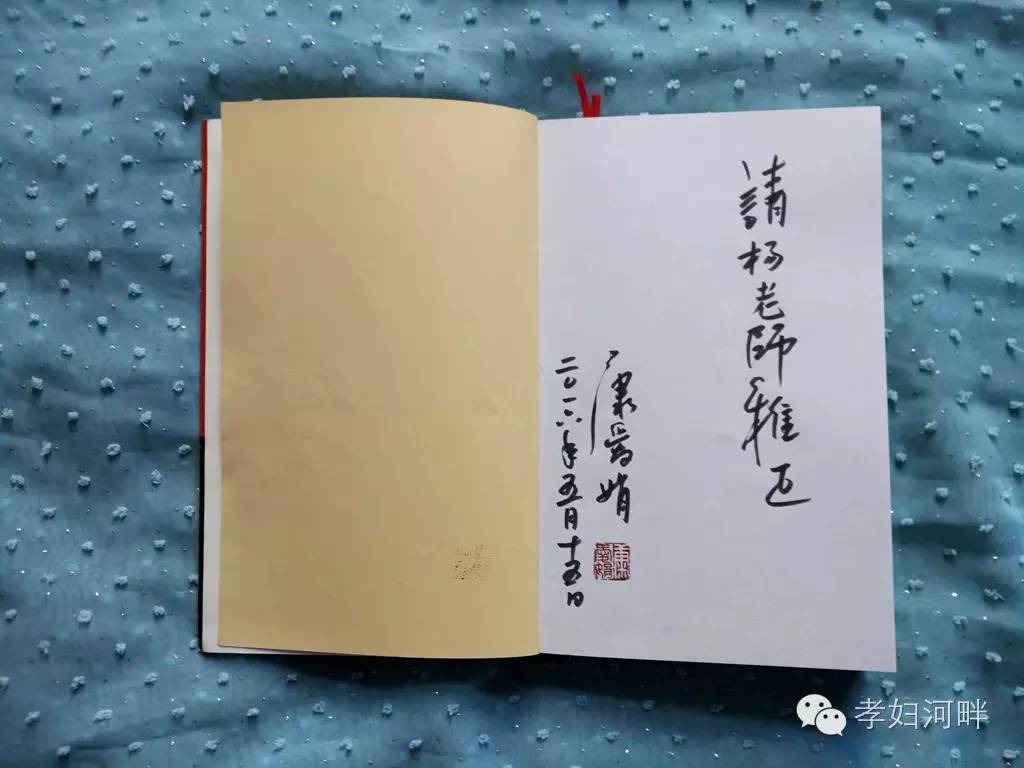 請杨老師雅正
康爱娟
二〇一六年五月十五日
孝妇河畔